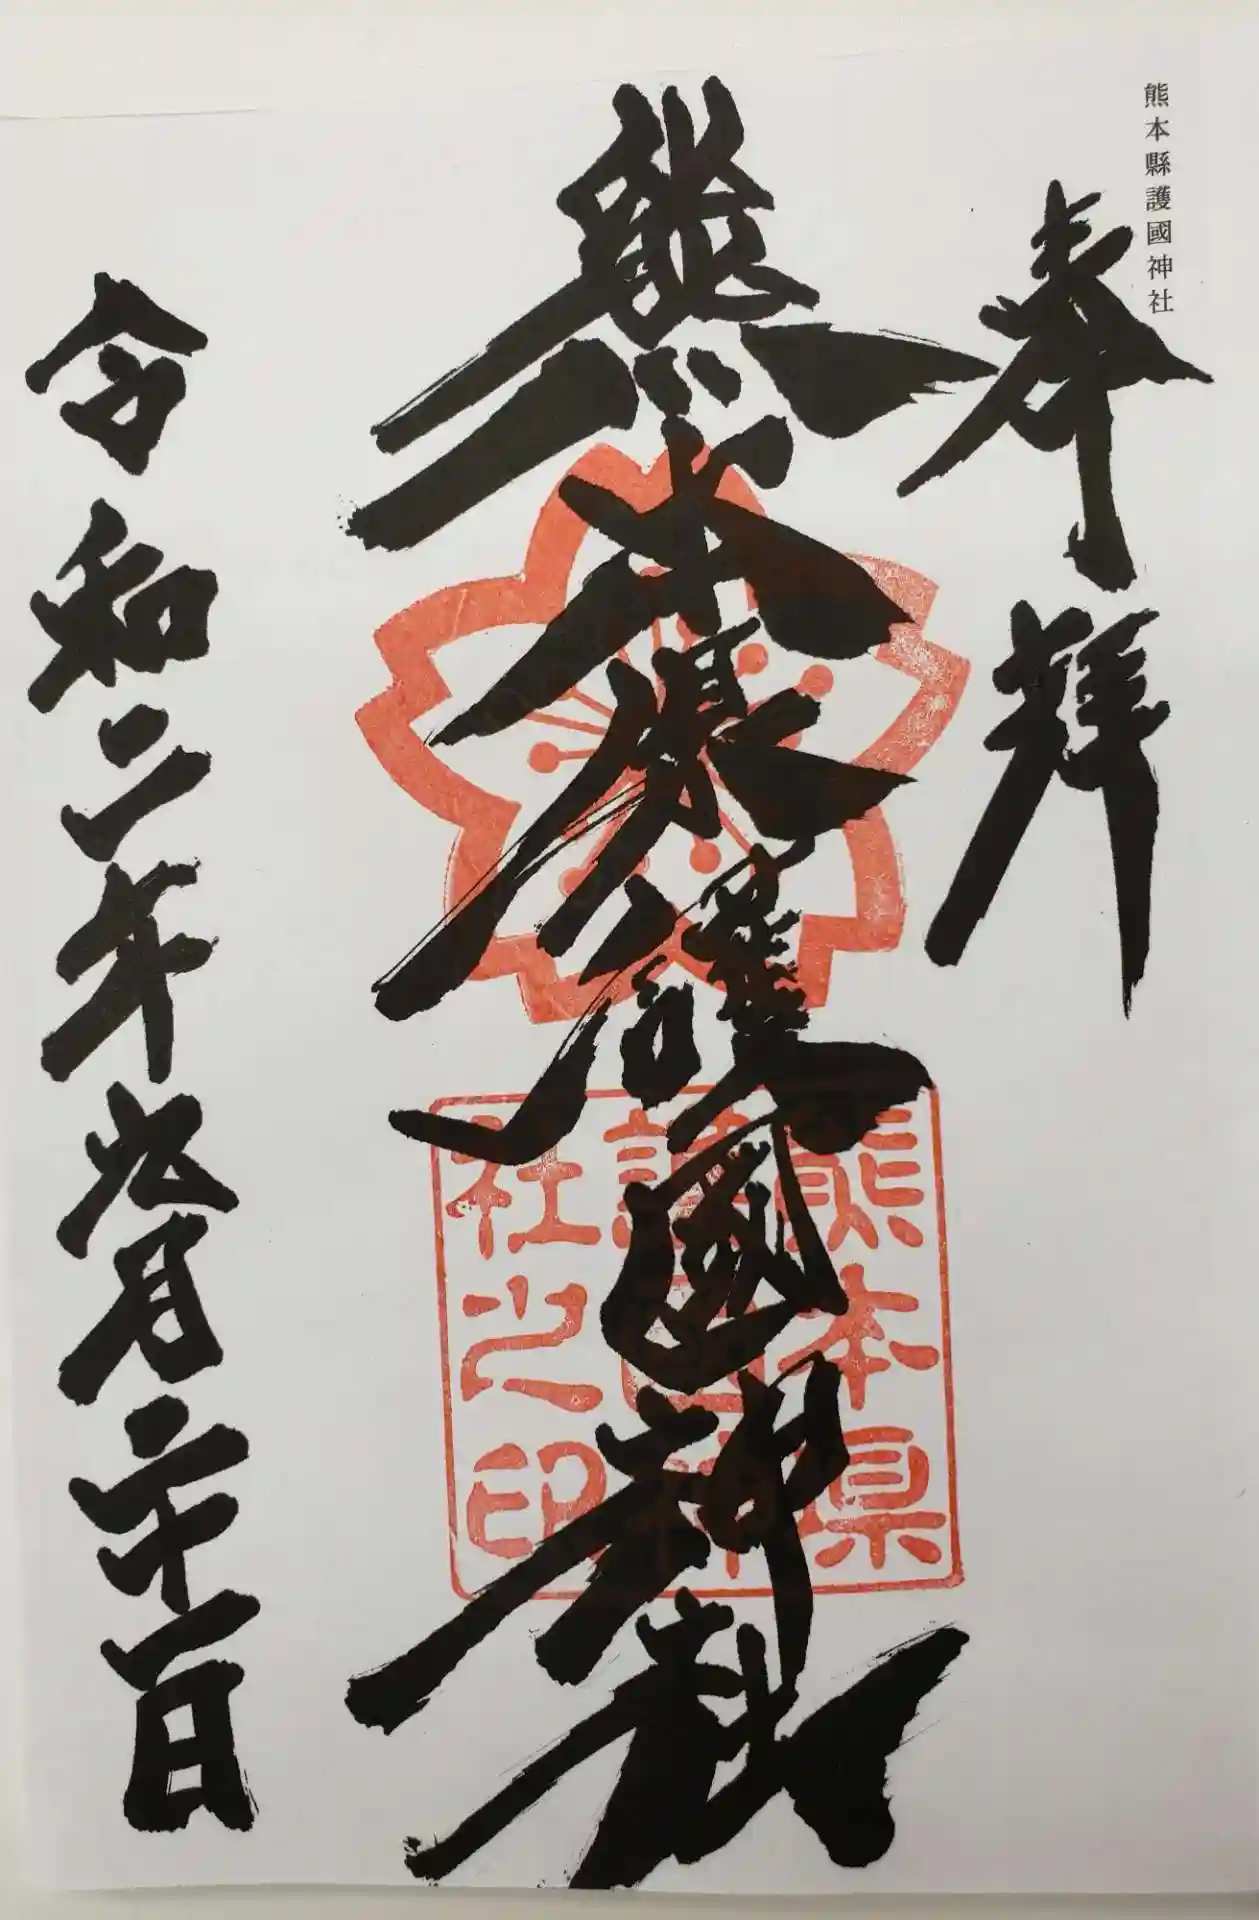 熊本縣護國神社
奉拝
熊本県護國神社
令和二年九月二十一日
熊本県
護国神
社之印